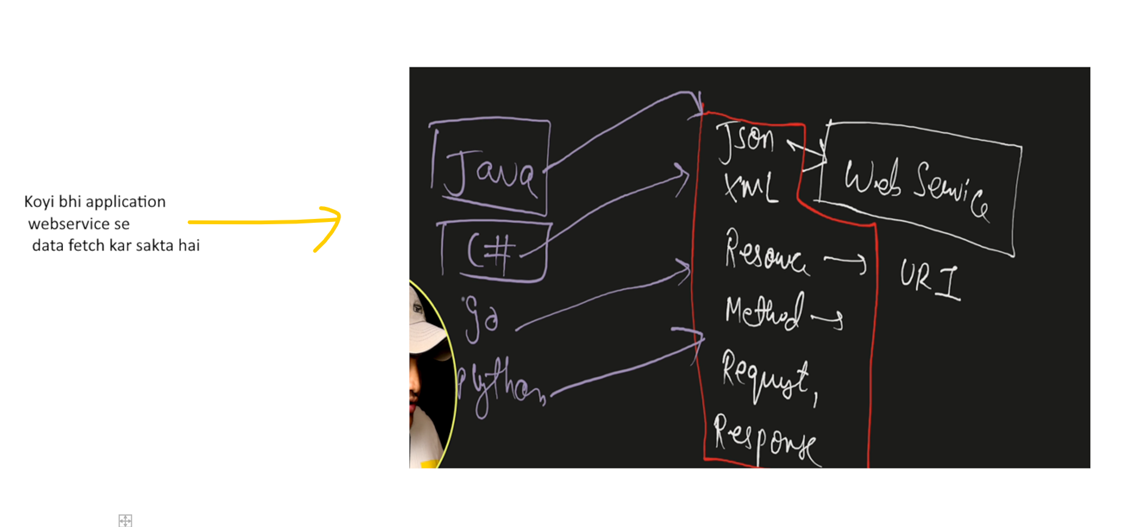 Koyi bhi application
webservice se
data fetch kar sakta hai
Java
C#
go
Python
Json
XML
Resource
Method
Request,
Response
Web Service
URI